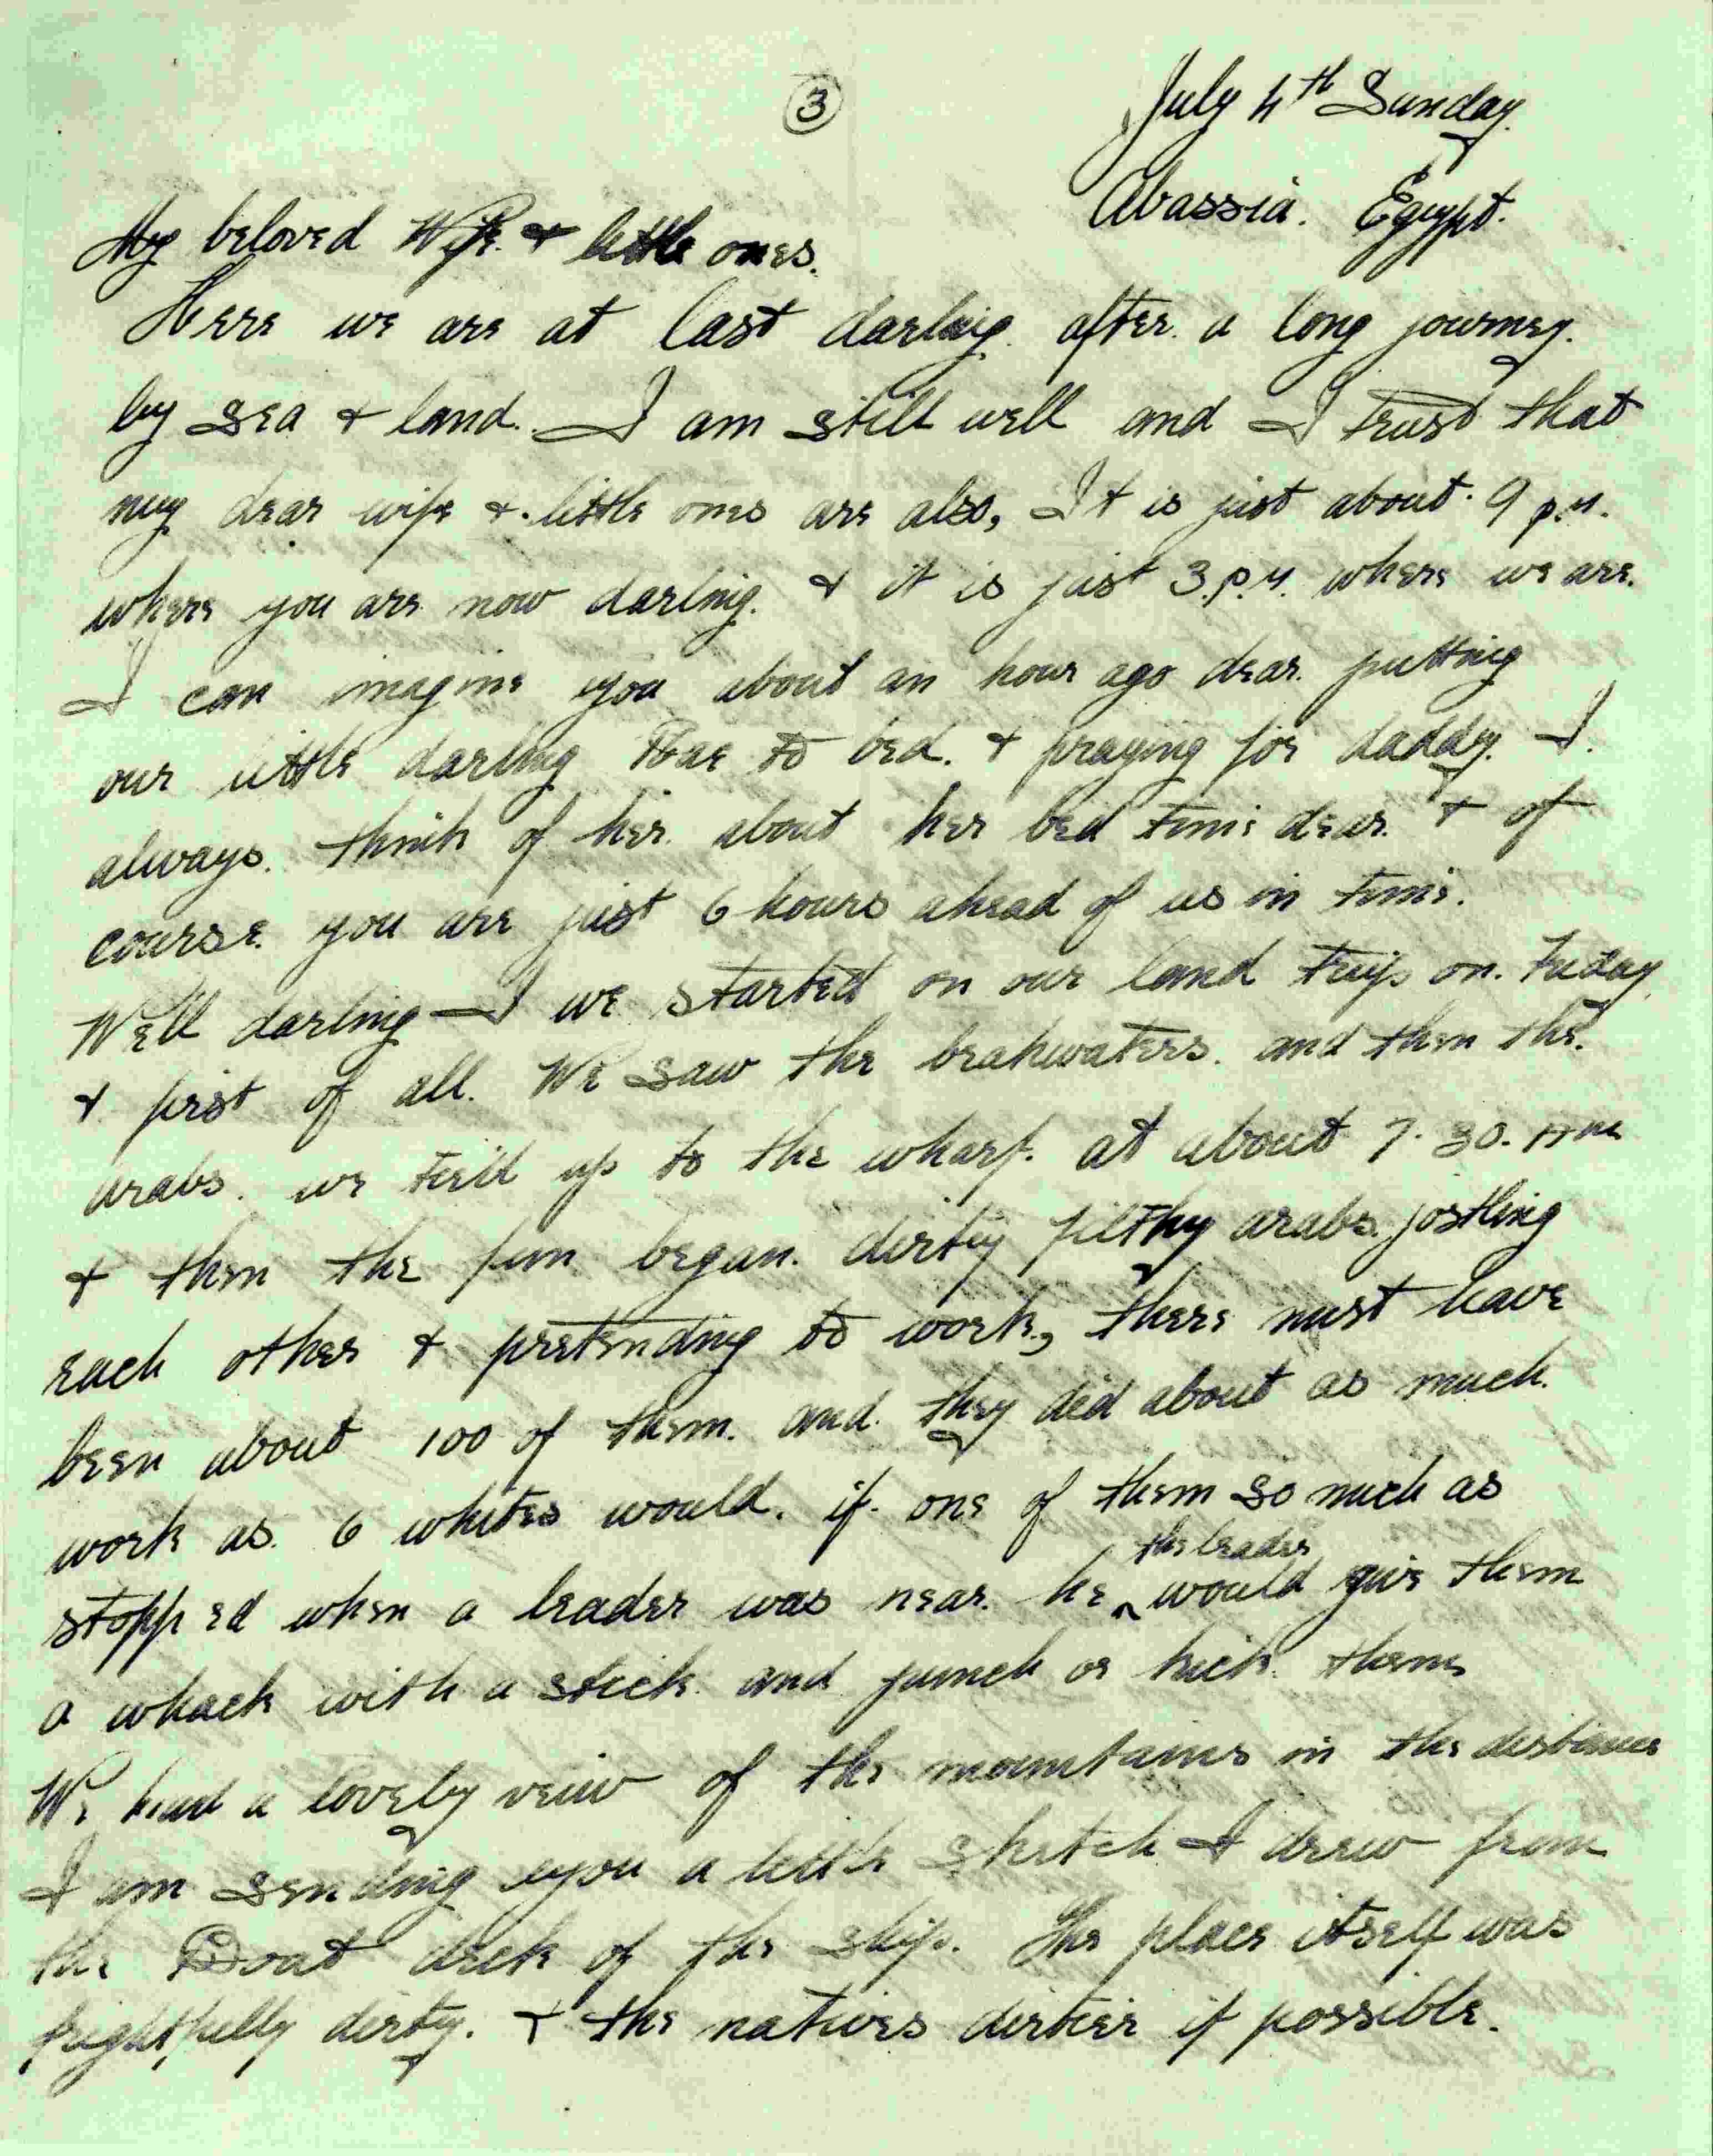 ③
July 4th Sunday.
Abassia. Egypt.
My beloved Wife. & little ones.
Here we are at last darling. after a long journey.
by sea & land. I am still well and I trust that
my dear wife & little ones are also, It is just about 9 p.m.
where you are now darling. & it is just 3.p.m. where we are.
I can imagine you about an hour ago dear. putting
our little darling to bed. & praying for daddy. I.
always. think of her. about her bed time dear. & of
course. you are just 6 hours ahead of us in time.
Well darling I we started on our land trip on.
& first of all. We saw the brakwaters. and then the.
arabs. we tei'd up to the wharf. at about 7.30. Am
& then the fun began. dirty filthy arabs. jostling
each other & pretending to work, there must have
been about 100 of them. and they did about as much.
work as. 6 whites would. if one of them so much as
the leader
stopped when a leader was near. he ^ would give them
a whack with a stick. and punch or kick. them
We had a lovely veiw of the mountains in the distance
I am sending you a little sketch I drew from
the Boat deck of the ship. The place itself was
frightfully dirty. & the natives dirtier if possible.